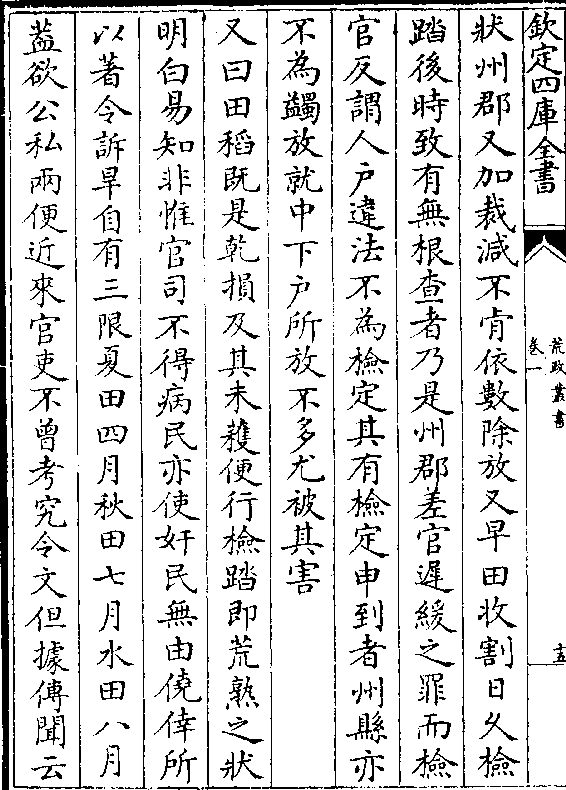 欽定四庫全書
荒政叢書
卷一
十五
狀州郡又加裁減不肯依數除放又早田收割日久檢
踏後時致有無根查者乃是州郡差官遲緩之罪而檢
官反謂人户違法不為檢定其有檢定申到者州縣亦
不為蠲放就中下户所放不多尤被其害
又曰田稻既是乾損及其未穫便行檢踏即荒熟之狀
明白易知非惟官司不得病民亦使奸民無由僥倖所
以著令訴旱自有三限夏田四月秋田七月水田八月
葢欲公私兩便近來官吏不曾考究令文但據傳聞云